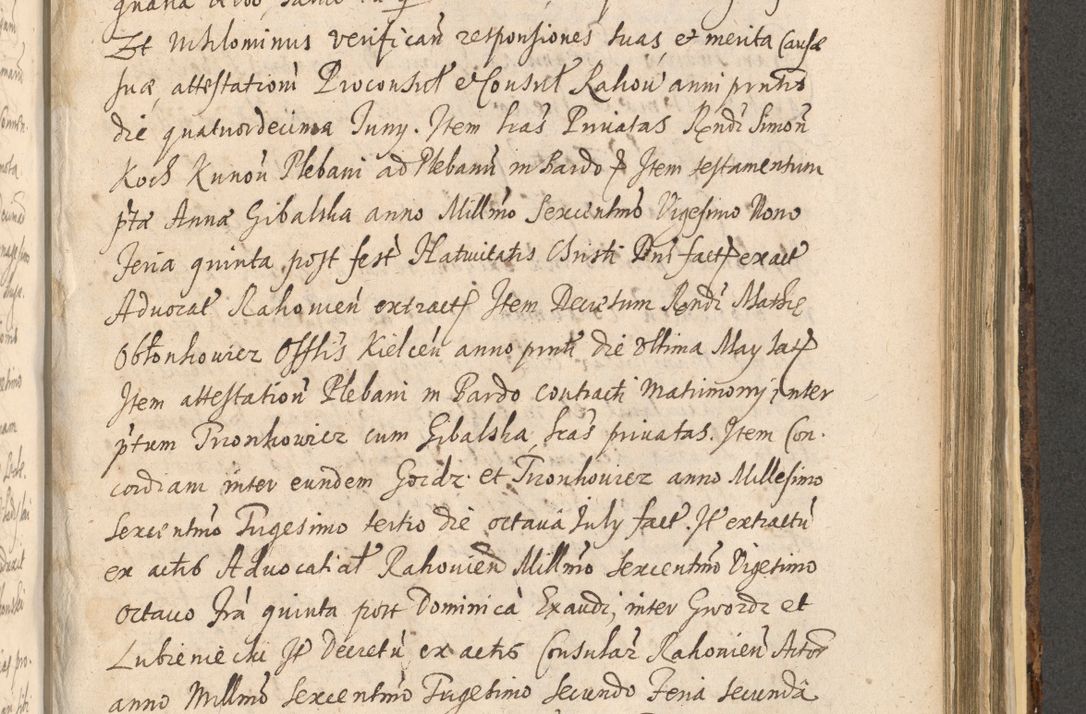 Et nihilominus verificań responsiones suas et merita Causæ
suæ attestationi Proconsul et Consul Rakoviń anni pnntis
die quatuordecima Iuny. Item lras Privatas Rndi Simon
Koch Kunoń Plebani ad Plebanū in Bardo Item testamentum
ptæ Anna Gibalska anno Millmo Sexcentmo Vigesimo Nono
Feria quinta post fest Natiuitatis Christi Dni fact exact
Aduocat Rakouień extract Item Decretum Rndi Mathiæ
Obłonkowicz Offlis Kielceń anno pnti die Vltima May lat
Item attestation Plebani in Bardo contracti Matrimony inter
ptum Tronkowicz cum Gibalska, lras priuatas. Item Con-
cordiam inter eundem Gordz et Tronkowicz anno Millesimo
Sexcentmo Trigesimo tertio die octaua July fact. It extractū
ex actis Aduocatial Rakouień Millmo Sexcentmo Vigesimo
octauo fra quinta post Dominicā Exaudi, inter Gwordz et
Lubieniecki It Decretū ex actis Consular Rakouień Actor
anno Millmo Sexcentmo Trigesimo secundo Feria secundâ